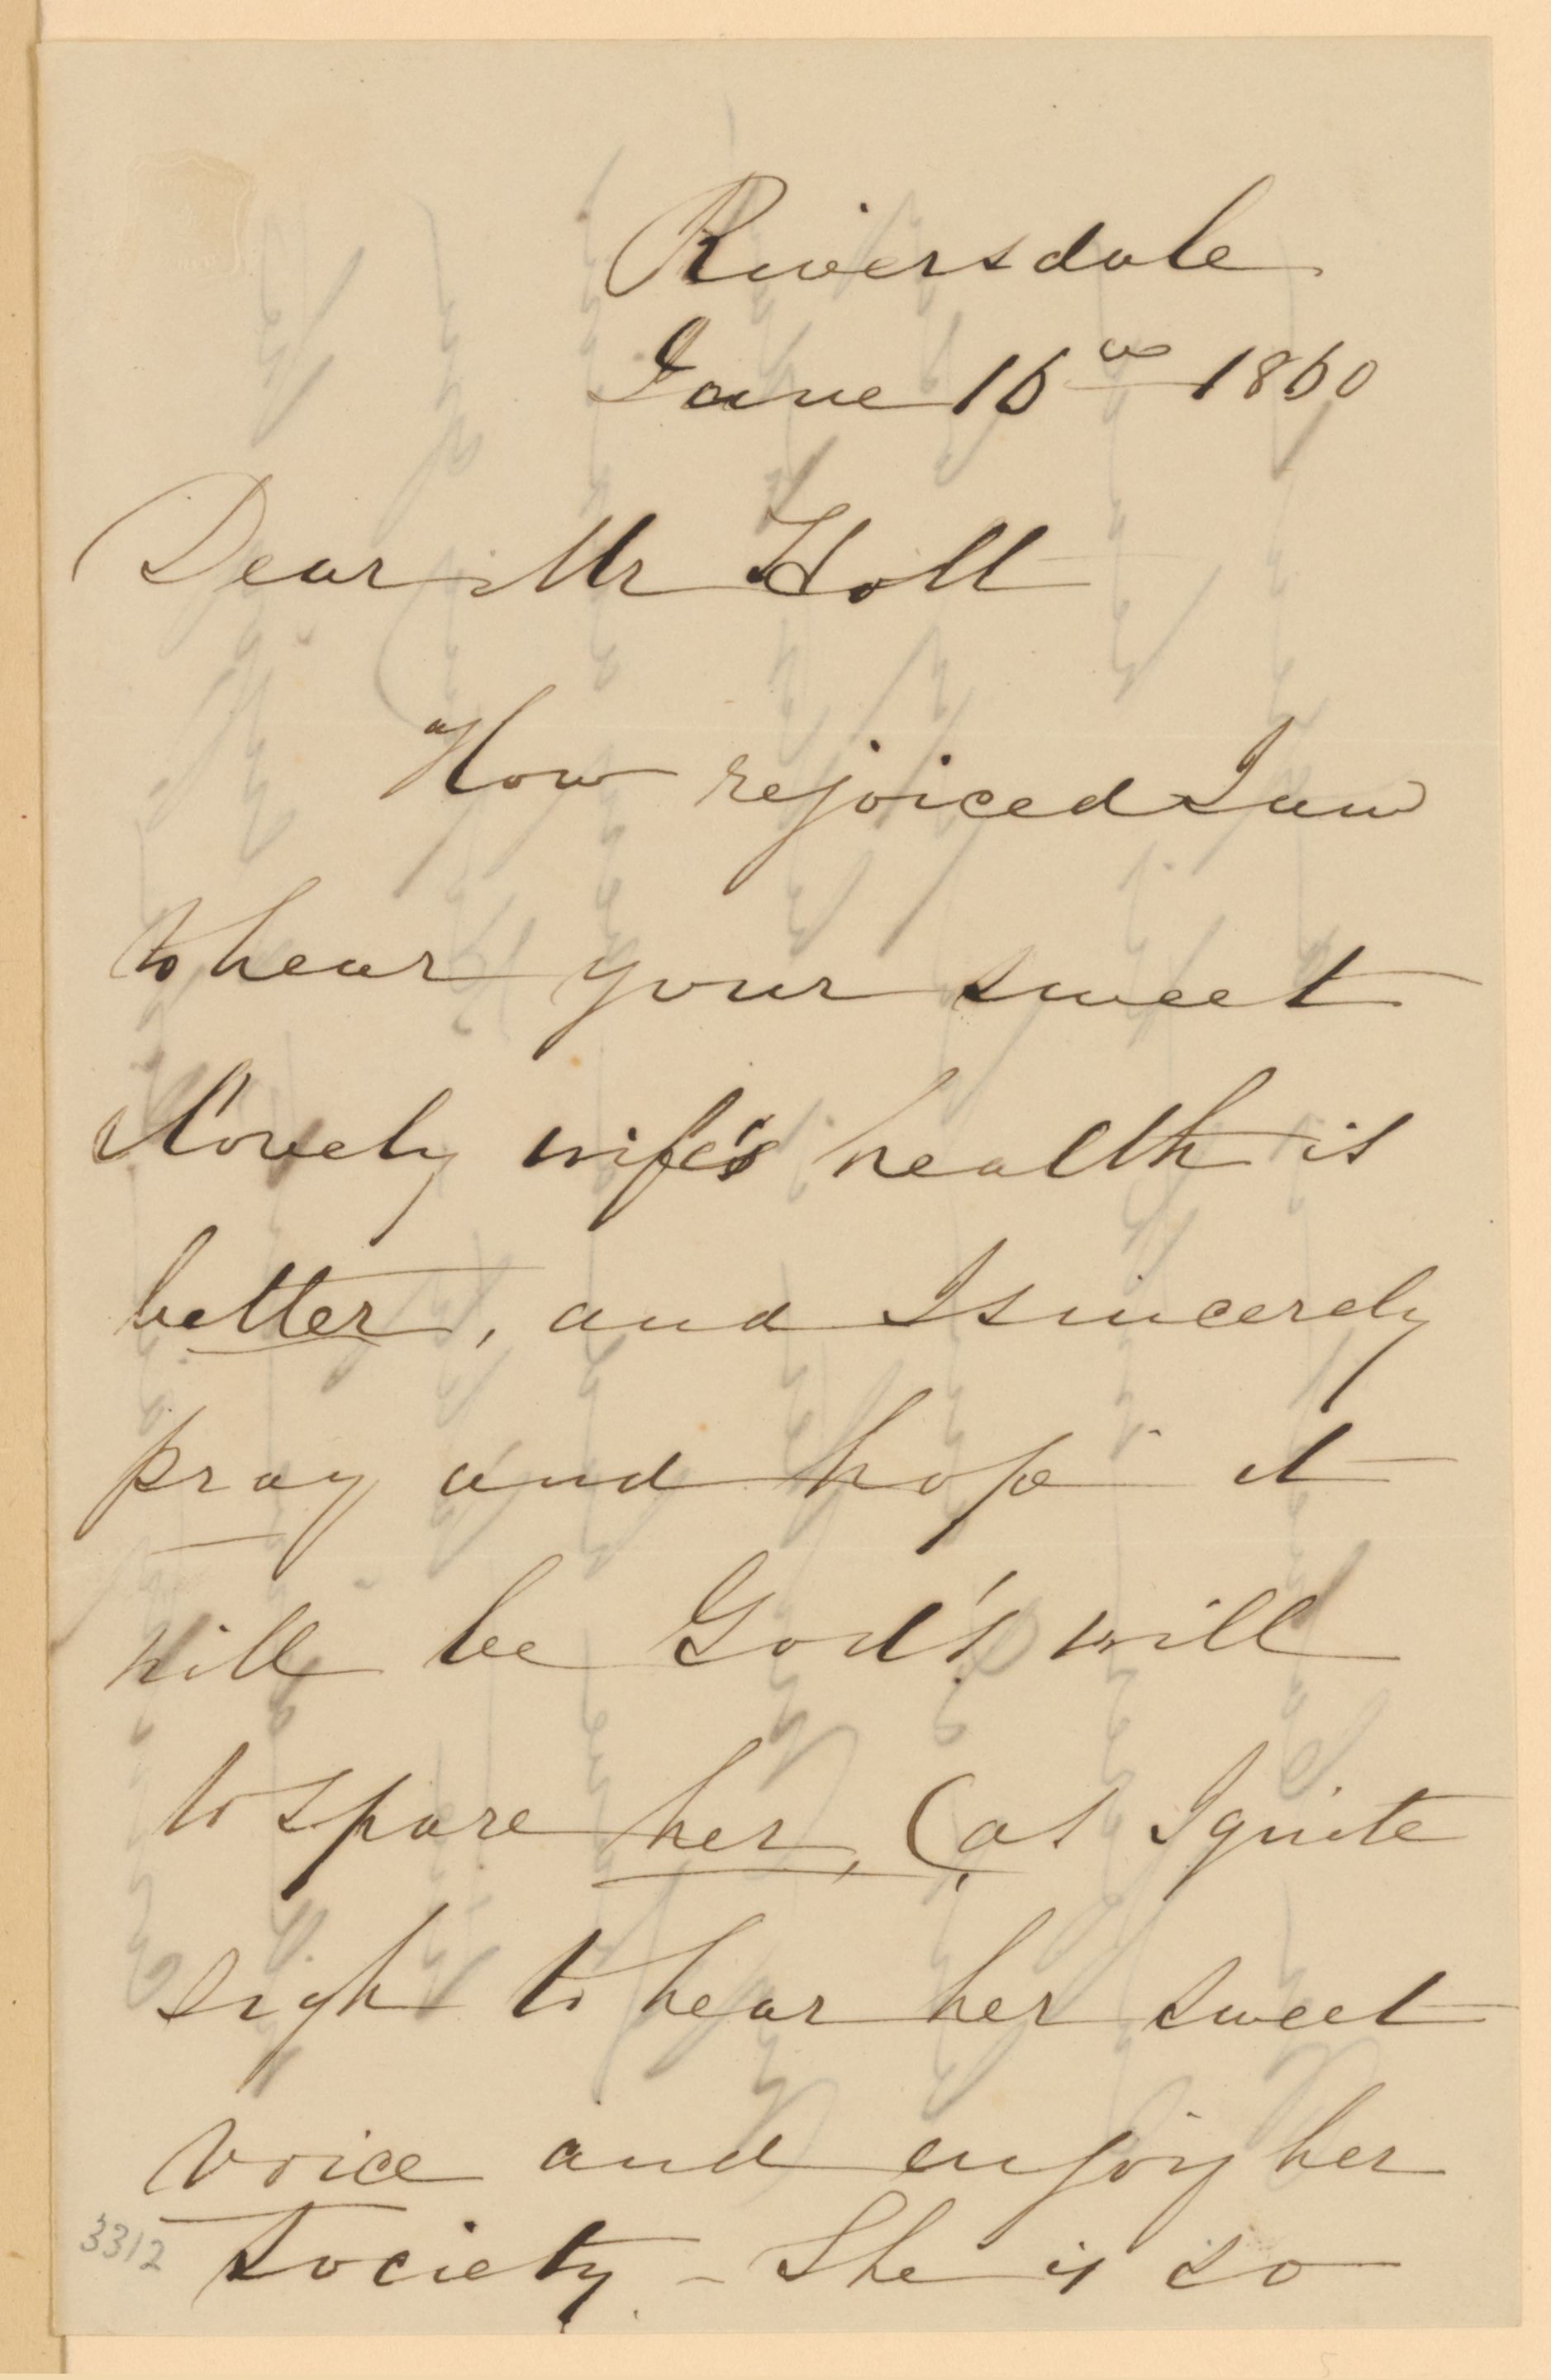 Riversdale
June 16th 1860
Dear Mr Holt
How rejoiced I am
to hear your sweet
lovely wife's health is
better, and I sincerely
pray and hope it
will be God's will
to spare her, (as I quite
sigh to hear her sweet
voice and enjoy her
society - She is so
3312